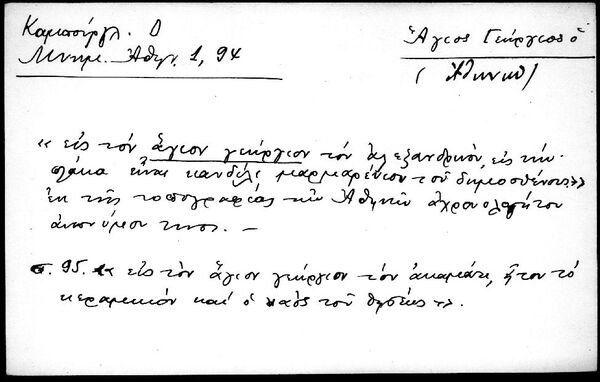 Καμπούρογλ. Δ
Μνημ. Ἀθην. 1, 94
Ἅγιος Γεώργιος ὁ
(Ἀθηνῶν)
« εἰς τὸν ἅγιον γεώργιον τὸν ἀλεξανδρινὸν, εἰς τὴν
πλάκα εἶναι κανδύλι μαρμαρένιον τοῦ δημοσθένους »
ἐκ τῆς τοπογραφίας τῶν Ἀθηνῶν ἀχρονολογήτου
ἀνωνύμου τινος. —
σ. 95. « εἰς τὸν ἅγιον γεώργιον τὸν ἀκαμάτη, ἦτον τὸ
κεραμεικὸν καὶ ὁ ναὸς τοῦ θησέως ».